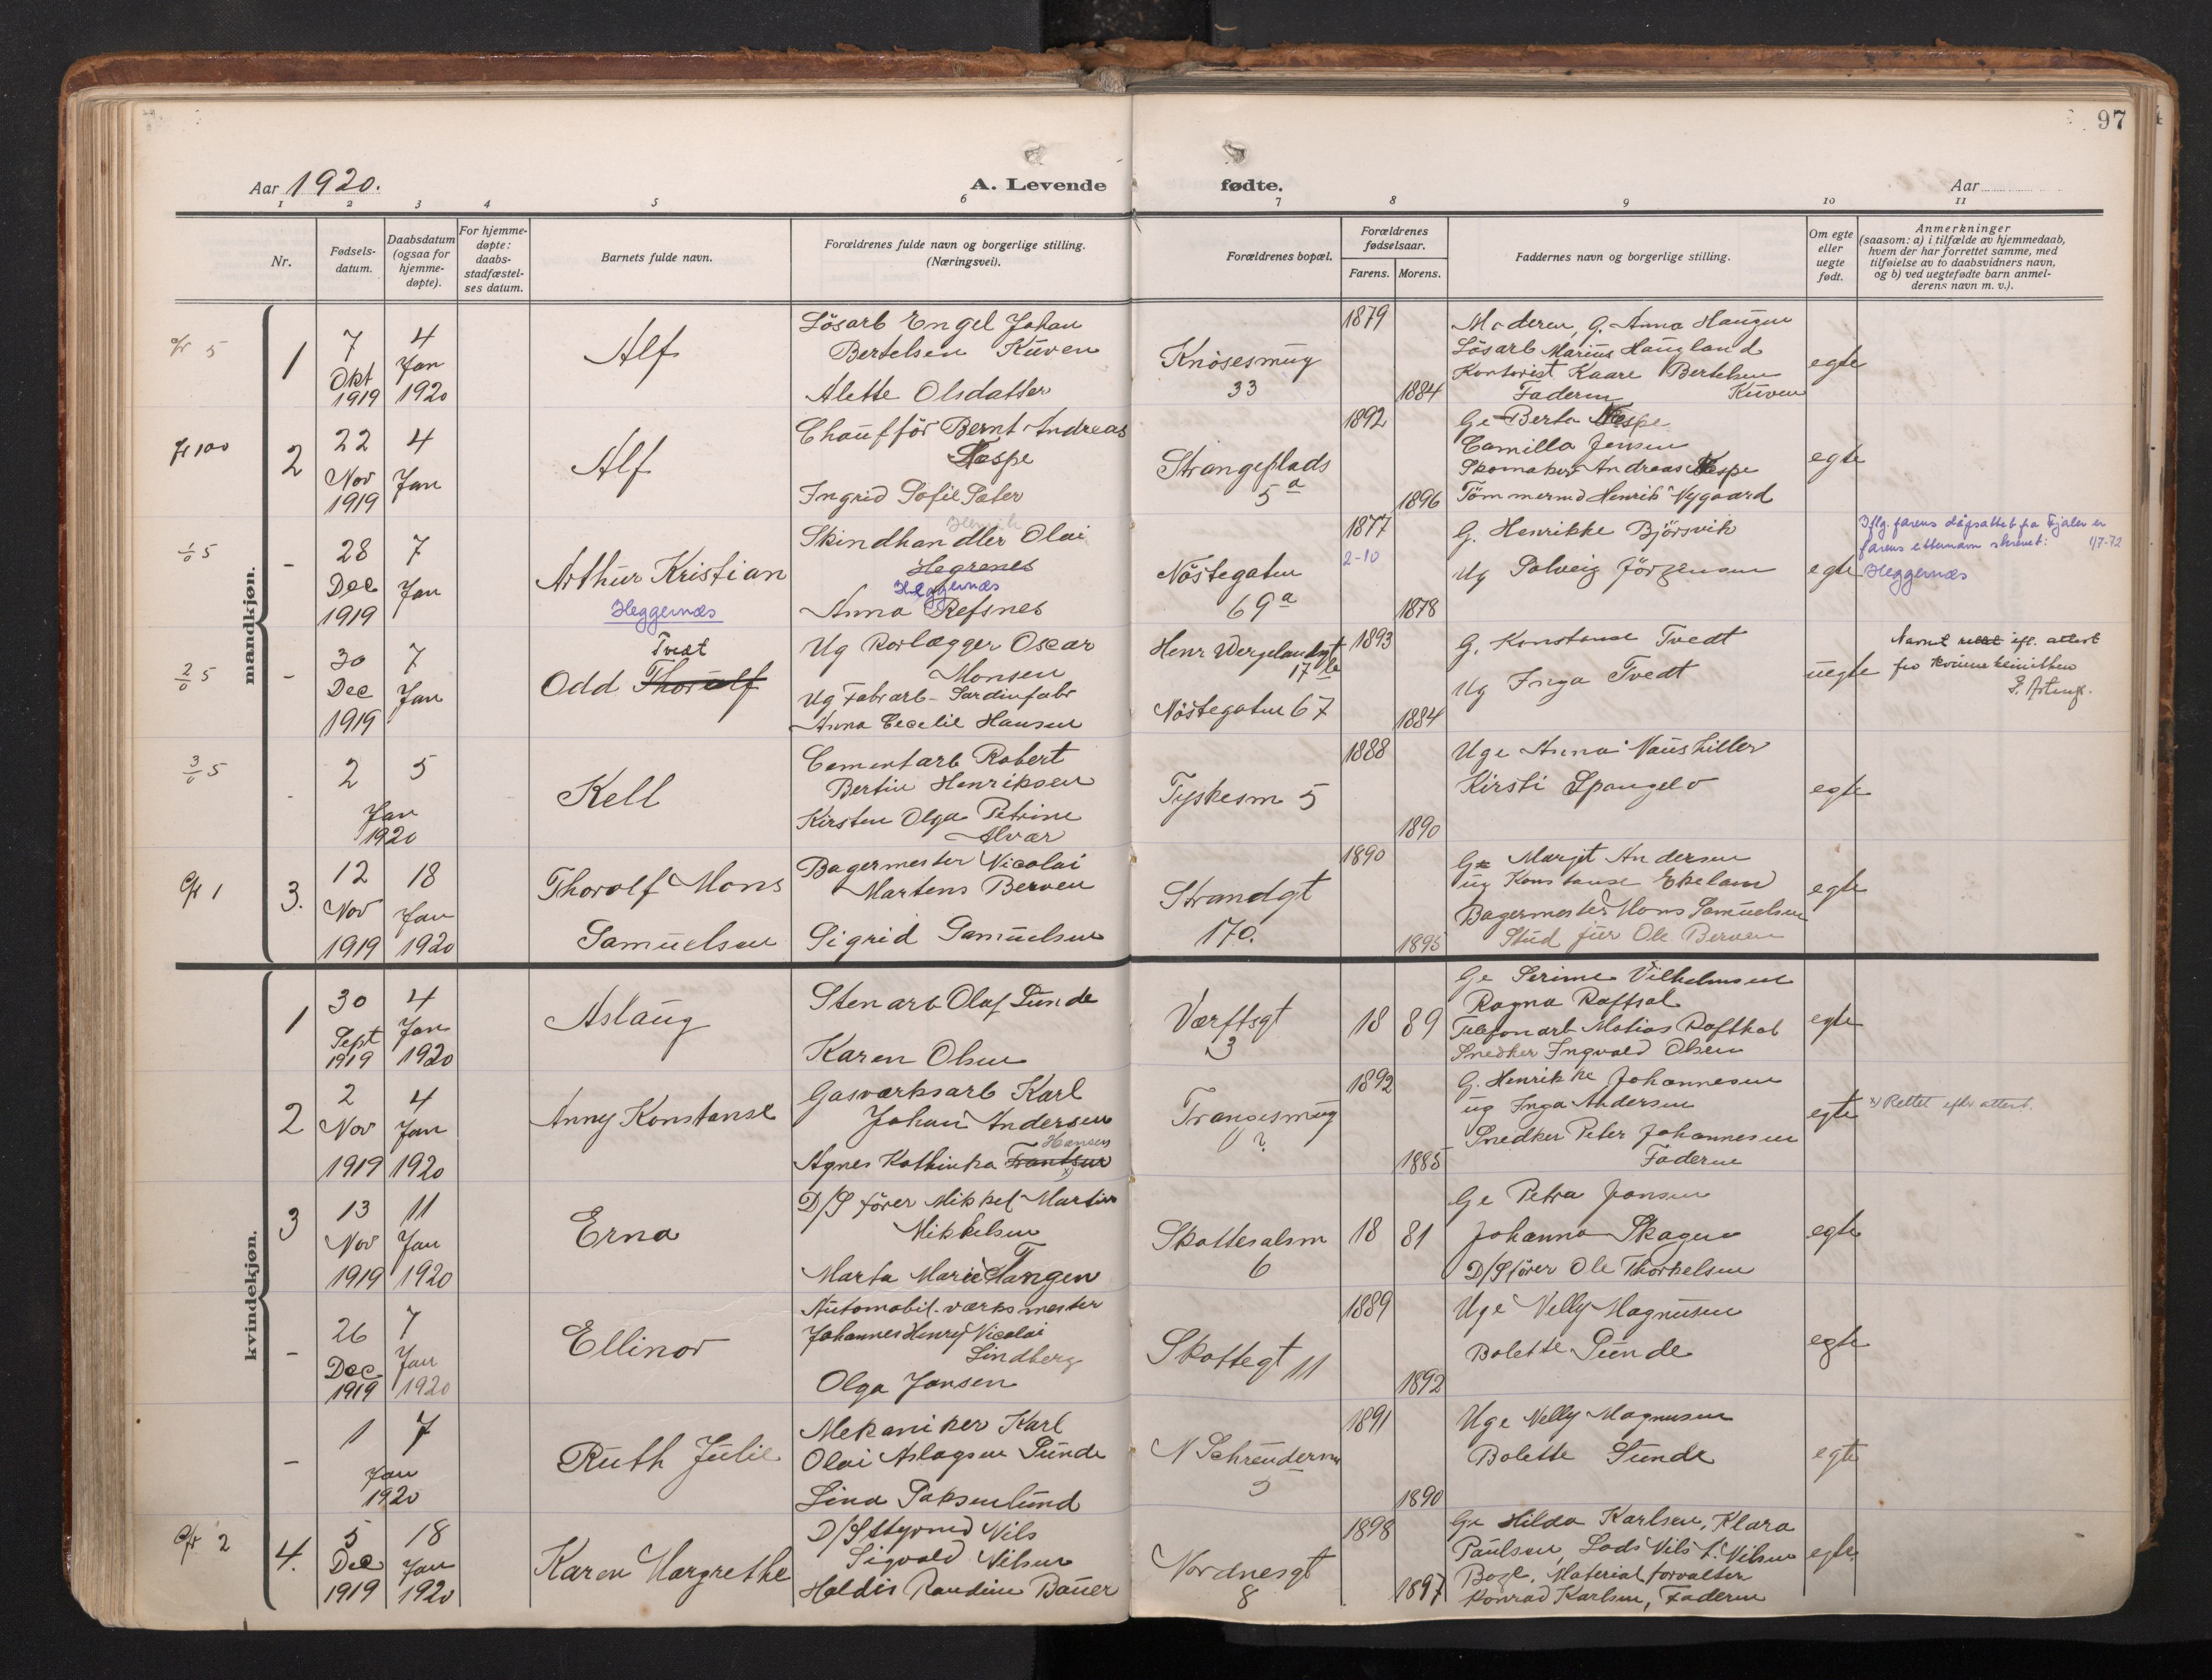 97
Aar 1920.
A. Levende
fødte.
Aar
1 2 3 4 5 6 7 8 9 10 11
Nr.
Fødsels-
datum.
Daabsdatum
(ogsaa for
hjemme-
døpte).
For hjemme-
døpte:
daabs-
stadfæstel-
ses datum.
Barnets fulde navn.
Forældrenes fulde navn og borgerlige stilling.
(Næringsvei).
Forældrenes bopæl.
Forældrenes
fødselsaar.
Farens. Morens.
Faddernes navn og borgerlige stilling.
Om egte
eller
uegte
født.
Anmerkninger
(saasom: a) i tilfælde av hjemmedaab,
hvem der har forrettet samme, med
tilføielse av to daabsvidners navn,
og b) ved uegtefødte barn anmel-
derens navn m. v.).
mandkjøn.
5
1
7
Okt
1919
4
Jan
1920
Alf
Løsarb Engel Johan
Bertelsen Kuven
Alette Olsdatter
Knøsesmug
33
1879
1884
Moderen, G. Anna Haugen
Løsarb Marius Haugland
Kontorist Kaare Bertelsen
Faderen Kuven
egte
fr 100
2
22
Nov
1919
4
Jan
Alf
Chauffør Bernt Andreas
Næspe
Ingrid Sofie Sater
Strangeplads
5a
1892
1896
Ge Berta Næspe
Camilla Jensen
Skomaker Andreas Næspe
Tømmermd Henrik Nygaard
egte
5
-
28
Dec
1919
7
Jan
Arthur Kristian
Heggernæs
Henrik
Skindhandler Olai
Hegrenes
Heggernæs
Anna Refsnes
Nøstegaten
69a
1877
2-10
1878
G. Henrikke Bjørsvik
Ug Solveig Jørgensen
egte
Iflg. farens dåpsattest fra Fjaler er
farens etternavn skrevet: 1/7-72
Heggernæs
2/0 5
-
30
Dec
1919
7
Jan
Tvedt
Odd Thorolf
Ug Rørlægger Oscar
Monsen
Ug Fabrarb - Sardinfabr
Anna Cecelie Hansen
Henr Wergelandsgt
17
Nøstegaten 67
1893
1884
G. Konstanse Tvedt
Ug Inga Tvedt
uegte
Navnet rettet efl. attest
fra
3/0 5
-
2
5
Jan
1920
Kell
Cementarb Robert
Bertin Henriksen
Kirsten Olga Petrine
Alvær
Tyskesm 5
1888
1890
Uge Anna Naushiller
Kirsti Spangelo
egte
1
3.
12
Nov
1919
18
Jan
1920
Thorolf Mons
Samuelsen
Bagermester Nicolai
Martens Berven
Sigrid Samuelsen
Strandgt
170.
1890
1895
Ge Margit Andersen
ug Konstanse Ekeland
Bagermester Mons Samuelsen
Stud jur Ole Berven
egte
kvindekjøn.
1
30
Sept
1919
4
Jan
1920
Aslaug
Stenarb Olaf Sunde
Karen Olsen
Værftsgt
3
18 89
Ge Serine Vilhelmsen
Ragna Raftsal
Telefonarb Matias Rafthal
Snedker Ingvald Olsen
egte
2
2
Nov
1919
4
Jan
1920
Anny Konstanse
Gasværksarb Karl
Johan Andersen
Hansen
Agnes Kathinka Frantsen x)
Trangesmug
?
1892
1885
G. Henrikke Johannesen
ug Inga Andersen
Snedker Peter Johannesen
Faderen
egte
x) Rettet efter attest.
3
13
Nov
1919
11
Jan
1920
Erna
D/S fører Mikkel Martin
Mikkelsen
Marta Marie Tangen
Skottesalsm
6
18 81
Ge Petra Jansen
Johanna Skagen
D/S fører Ole Thorkelsen
egte
-
26
Dec
1919
7
Jan
1920
Ellinor
Automobil-værksmester
Johannes Henry Nicolai
Lindberg
Olga Jansen
Skottegt 11
1889
1892
Uge Nelly Magnusen
Bolette Sunde
egte
-
1
7
Jan
1920
Ruth Julie
Mekaniker Karl
Olai Aslagsen Sunde
Lina Saksenlund
N Schreudersm
5
1891
1890
Uge Nelly Magnusen
Bolette Sunde
egte
2
4.
5
Dec
1919
18
Jan
1920
Karen Margrethe
D/S Styrmd Nils
Sigvald Nilsen
Haldis Randine Bauer
Nordnesgt
8
1898
1897
Ge Hilda Karlsen, Klara
Paulsen, Lods Nils S. Nilsen
Materialforvalter
Konrad Karlsen, Faderen
egte